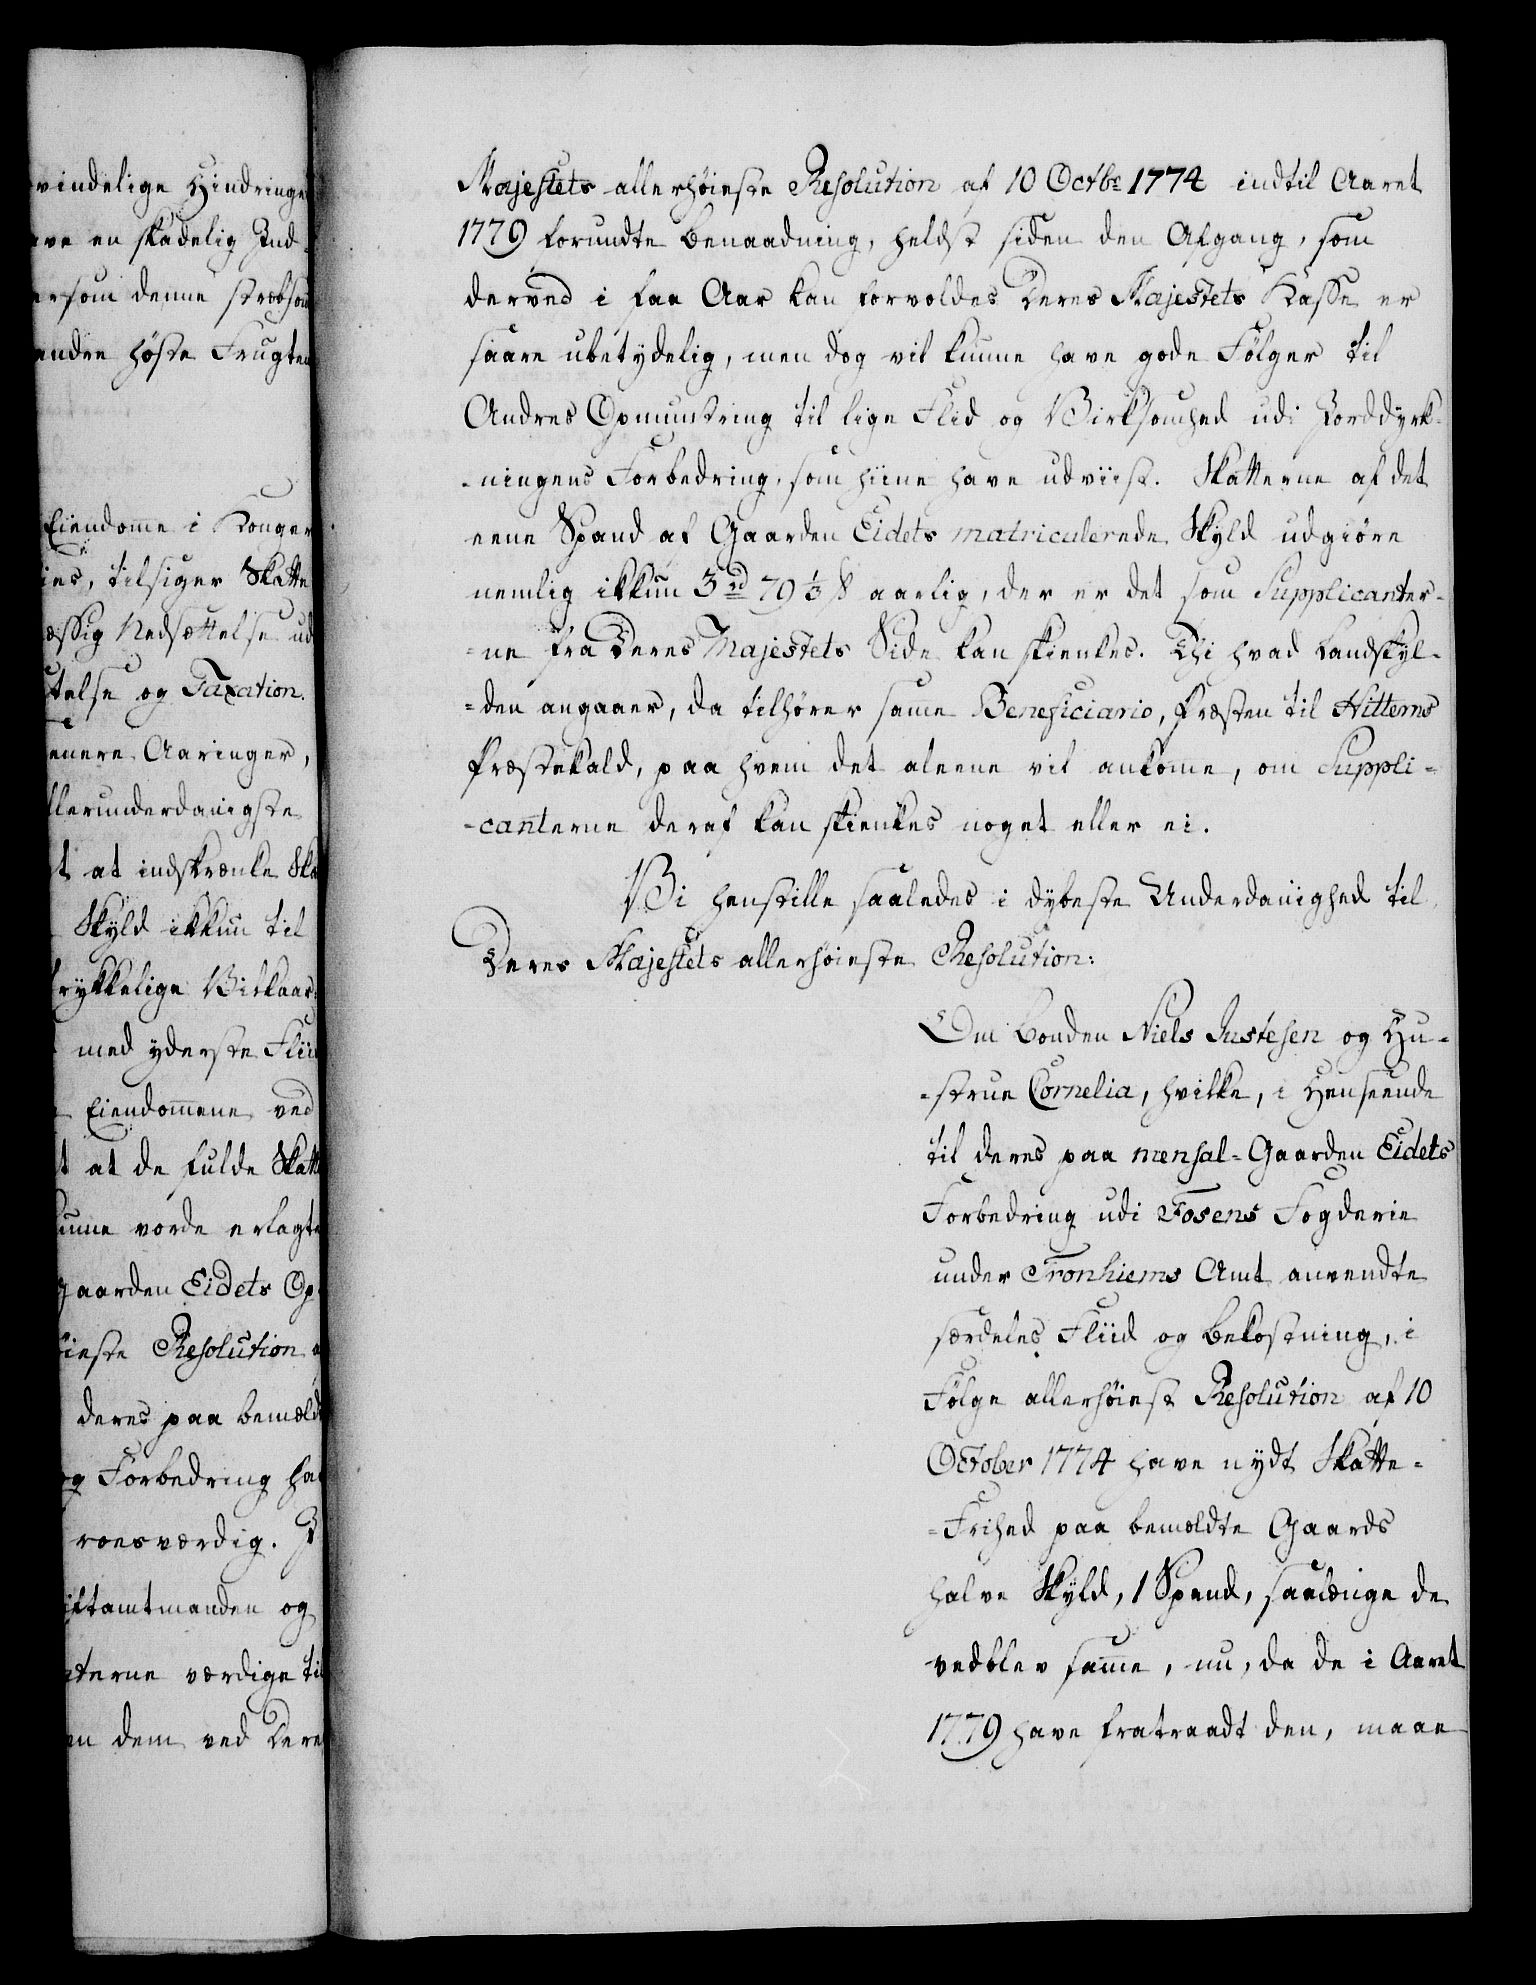 vindelige Hindringe
ave en skadelig Ind-
ersom denne stræbsom
andre høste Frugten
Eiendome i Konger
ies, tilsiger Skatte
æssig Nedsættelse ud
telse og Taxation.
enere Aaringer,
llerunderdanigste
t at indskrænke Ska
Skyld ikkun til
rykkelige Vilkaar
med yderste Flii
Eiendommene ved
t at de fulde Skatt
unne vorde erlagte
gaarden Eidets Op-
øieste Resolution a
deres paa bemeldt
og Forbedring ha
roesværdig. J
iftamtmanden og
terne værdige til
en dem ved Dere
Majestets allerhøieste Resolution af 10 Octbr 1774 indtil Aaret
1779 forundte Benaadning, heldst siden den Afgang, som
derved i faa Aar kan forvoldes Deres Majestets Kasse er
saare ubetydelig, men dog vil kunne have gode Fölger til
Andres Opmuntring til lige Flid og Virksomhed udi Jorddyrk-
-ningens Forbedring, som hiine have udviist. Skatterne af det
eene Spand af Gaarden Eidets matriculerede Skyld udgiöre
nemlig ikkun 3 rd 79 1/3 ß aarlig, der er det som Supplicanter-
-ne fra Deres Majestets Side kan skienkes. Thi hvad Landskyl-
-den angaaer, da tilhører same Beneficiario, Præsten til Hitterns
Præstekald, paa hvem det aleene vil ankome, om Suppli-
-canterne deraf kan skienkes noget eller ei.
Vi henstille saaledes i dybeste Underdanighed til
Deres Majestets allerhøieste Resolution:
Om Bonden Niels Justesen og Hu-
-strue Cornelia, hvilke, i Henseende
til deres paa mensal-Gaarden Eidets
Forbedring udi Fosens Fogderie
under Tronhiems Amt anvendte
særdeles Fliid og Bekostning, i
Fölge allerhøiest Resolution af 10
October 1774 have nydt Skatte-
-Frihed paa bemeldte Gaards
halve Skyld, 1 Spand, saalænge de
vedblev same, nu, da de i Aaret
1779 have fratraadt den, maae